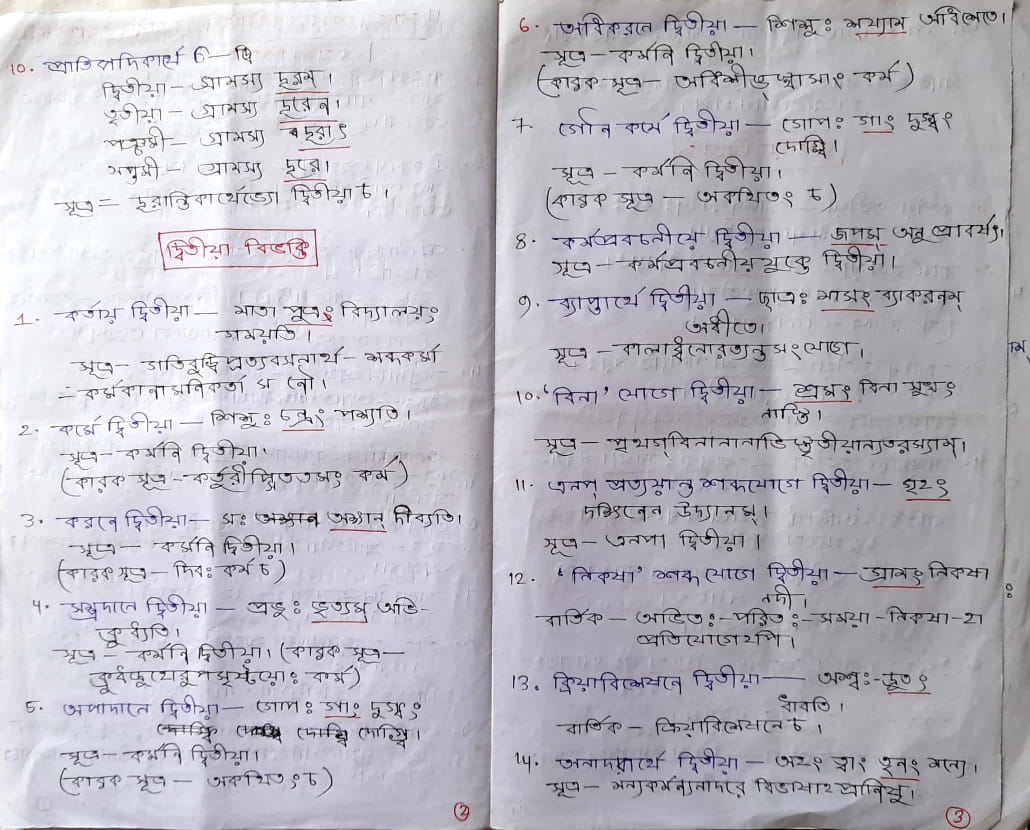 ১০. প্রাতিপদিকার্থে ৫-মি
দ্বিতীয়া — গ্রামস্য দূরম্।
তৃতীয়া — গ্রামস্য দূরেন।
পঞ্চমী — গ্রামস্য দূরাৎ
সপ্তমী — গ্রামস্য দূরে।
সূত্র — দূরান্তিকার্থেভ্যো দ্বিতীয়া চ।
দ্বিতীয়া বিভক্তি
1. কর্তায় দ্বিতীয়া — মাতা পুত্রং বিদ্যালয়ং
গময়তি।
সূত্র — গতিবুদ্ধিপ্রত্যবসনার্থ — শব্দকর্মা
— কর্মকানামনিকর্তা স নৌ।
2. কর্মে দ্বিতীয়া — শিশুঃ চন্দ্রং পশ্যতি।
সূত্র — কর্মনি দ্বিতীয়া।
(কারক সূত্র — কর্তুরীপ্সিততমং কর্ম)
3. করনে দ্বিতীয়া — সঃ অক্ষান্ দীব্যতি।
সূত্র — কর্মনি দ্বিতীয়া।
(কারক সূত্র — দিবঃ কর্ম চ)
4. সম্প্রদানে দ্বিতীয়া — প্রভুঃ ভৃত্যম্ অভি-
ক্রুধ্যতি।
সূত্র — কর্মনি দ্বিতীয়া। (কারক সূত্র —
ক্রুধদ্রুহোরুপসৃষ্টয়োঃ কর্ম)
5. অপাদানে দ্বিতীয়া — গোপঃ গাং দুগ্ধং
দোগ্ধি।
সূত্র — কর্মনি দ্বিতীয়া।
(কারক সূত্র — অকথিতং চ)
2
6. অধিকরনে দ্বিতীয়া — শিশুঃ শয্যাম্ অধিশেতে।
সূত্র — কর্মনি দ্বিতীয়া।
(কারক সূত্র — অধিশীঙ্স্থাসাং কর্ম)
7. গৌন কর্মে দ্বিতীয়া — গোপঃ গাং দুগ্ধং
দোগ্ধি।
সূত্র — কর্মনি দ্বিতীয়া।
(কারক সূত্র — অকথিতং চ)
8. কর্মপ্রবচনীয়ে দ্বিতীয়া — জপম্ অনু প্রাবর্ষৎ।
সূত্র — কর্মপ্রবচনীয়যুক্তে দ্বিতীয়া।
9. ব্যাপ্ত্যর্থে দ্বিতীয়া — ছাত্রঃ মাসং ব্যাকরনম্
অধীতে।
সূত্র — কালাধ্বনোরত্যন্তসংযোগে।
10. 'বিনা' যোগে দ্বিতীয়া — শ্রমং বিনা সুখং
নাস্তি।
সূত্র — পৃথগ্‌বিনানানাভিস্তৃতীয়ান্যতরস্যাম্।
11. এনপ্ প্রত্যয়ান্ত শব্দযোগে দ্বিতীয়া — গৃহং
দক্ষিনেন উদ্যানম্।
সূত্র — এনপা দ্বিতীয়া।
12. 'নিকষা' শব্দ যোগে দ্বিতীয়া — গ্রামং নিকষা
নদী।
বার্তিক — অভিতঃ-পরিতঃ-সময়া-নিকষা-হা
প্রতিযোগেঽপি।
13. ক্রিয়াবিশেষনে দ্বিতীয়া — অশ্বঃ দ্রুতং
ধাবতি।
বার্তিক — ক্রিয়াবিশেষনে চ।
14. অনাদরার্থে দ্বিতীয়া — অহং ত্বাং তৃনং মন্যে।
সূত্র — মন্যকর্মন্যনাদরে বিভাষাঽপ্রানিষু।
3